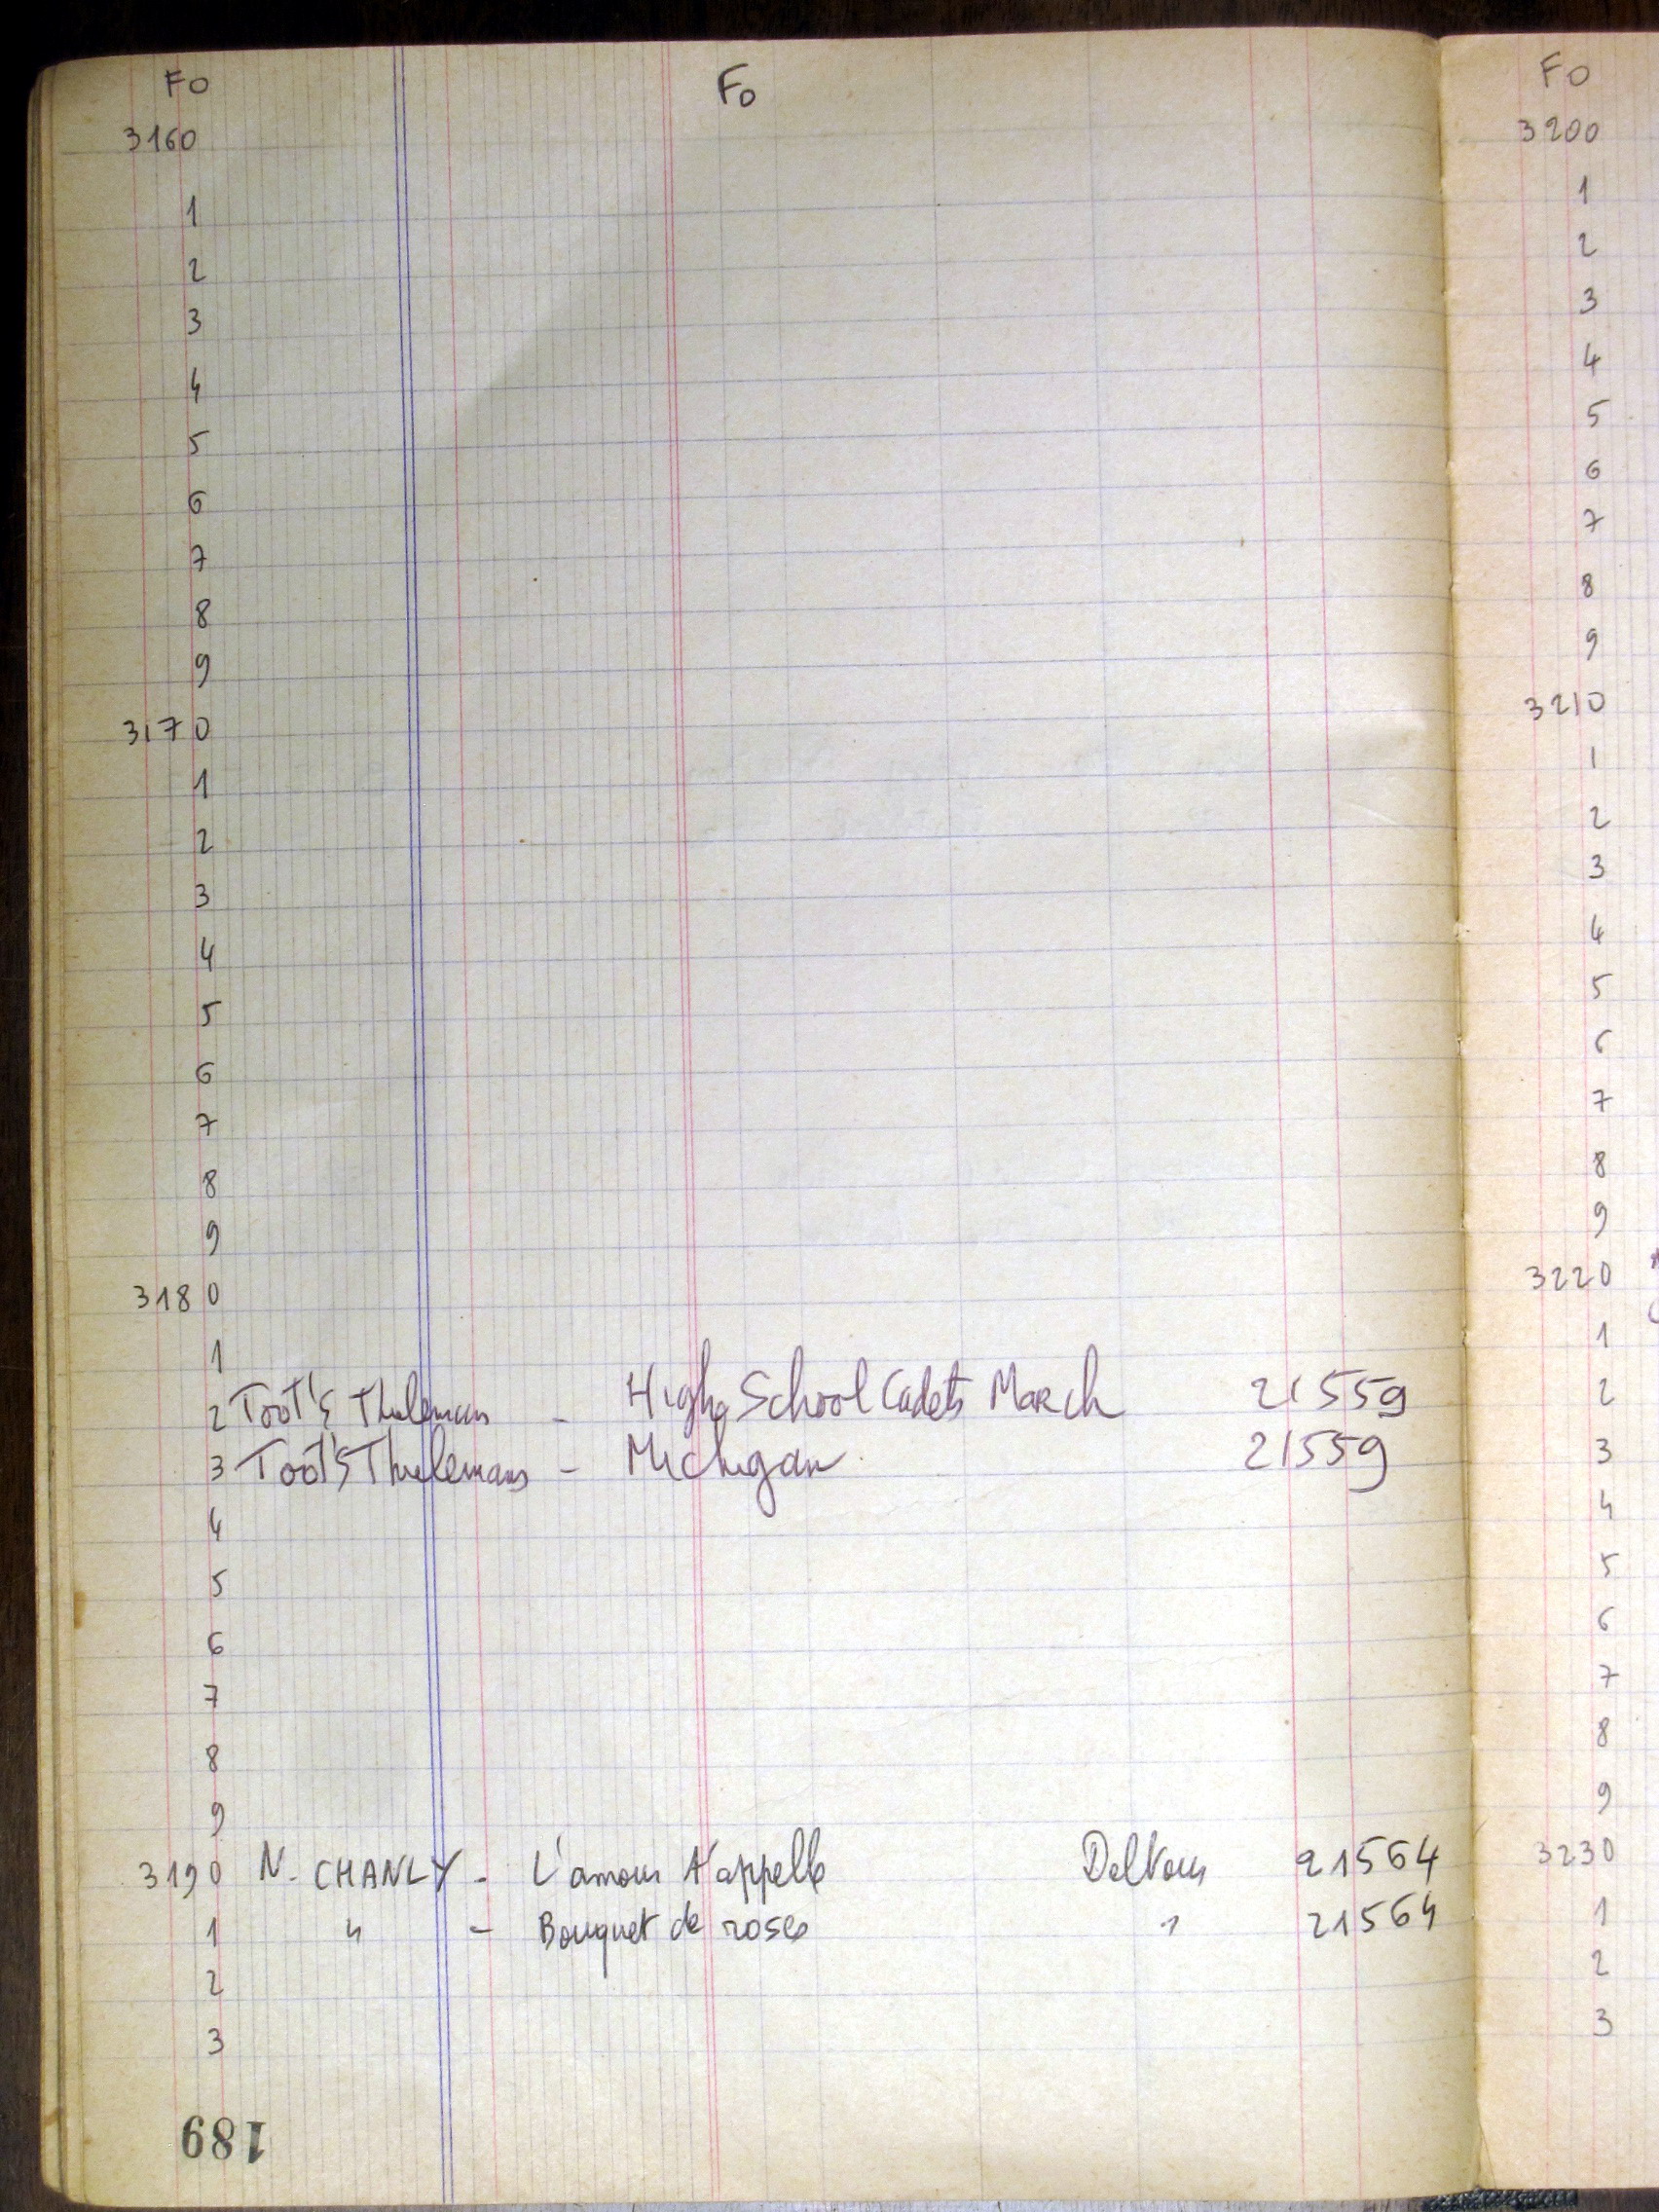 Fo Fo
3160
1
2
3
4
5
6
7
8
9
3170
1
2
3
4
5
6
7
8
9
3180
1
2 Toot's Thielemans - High School Cadets March 21559
3 Toot's Thielemans - Michigan 21559
4
5
6
7
8
9
3190 N. CHANLY - L'amour t'appelle 21564
1 " - Bouquet de roses " 21564
2
3
189
Fo
3200
1
2
3
4
5
6
7
8
9
3210
1
2
3
4
5
6
7
8
9
3220
1
2
3
4
5
6
7
8
9
3230
1
2
3